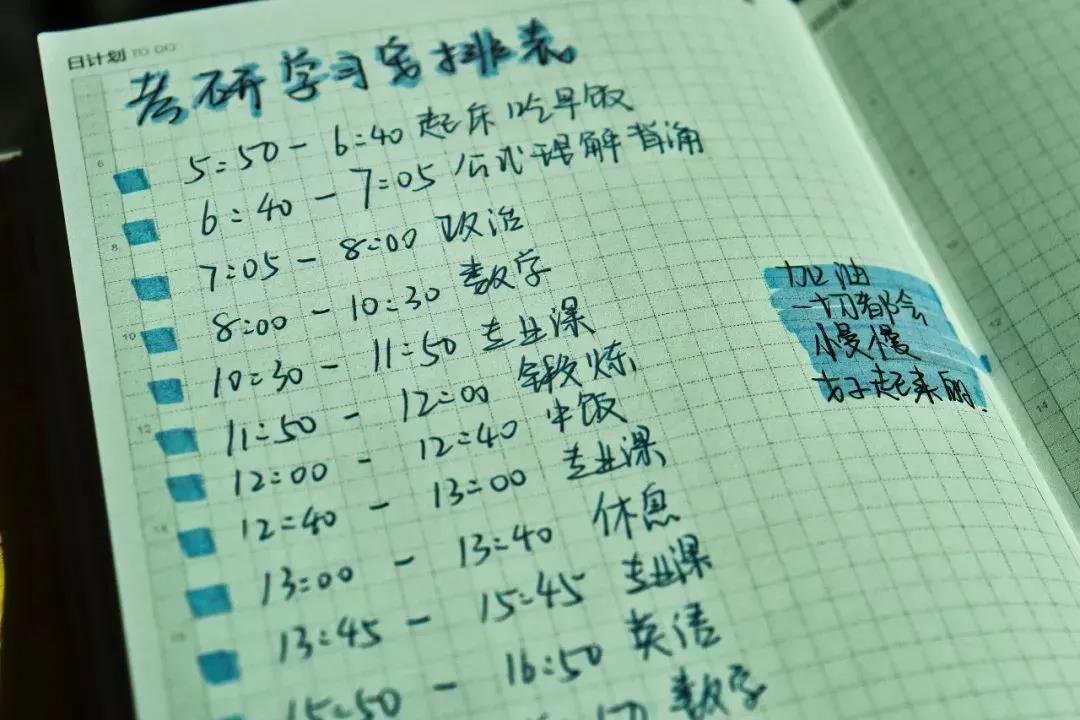 日计划 TO DO
考研学习安排表
5:50 - 6:40 起床吃早饭
6:40 - 7:05 公式理解背诵
7:05 - 8:00 政治
8:00 - 10:30 数学
10:30 - 11:50 专业课
11:50 - 12:00 锻炼
12:00 - 12:40 中饭
12:40 - 13:00 专业课
13:00 - 13:40 休息
13:45 - 15:45 专业课
15:50 - 16:50 英语
数学
加油
一切都会
慢慢
好起来的.
6
8
10
12
14
10
12
14